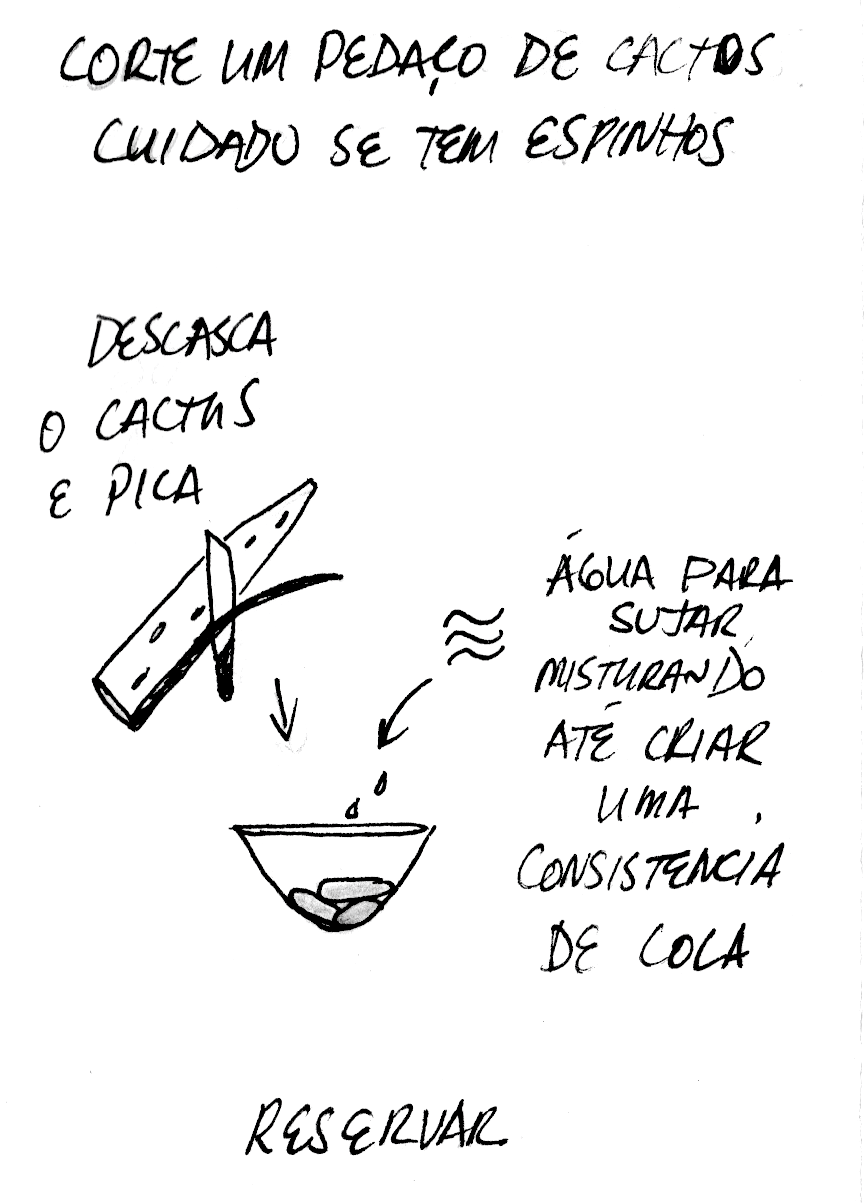 CORTE UM PEDAÇO DE CACTOS
CUIDADO SE TEM ESPINHOS
DESCASCA
O CACTUS
E PICA
ÁGUA PARA
SUJAR,
MISTURANDO
ATÉ CRIAR
UMA
CONSISTENCIA
DE COLA
RESERVAR